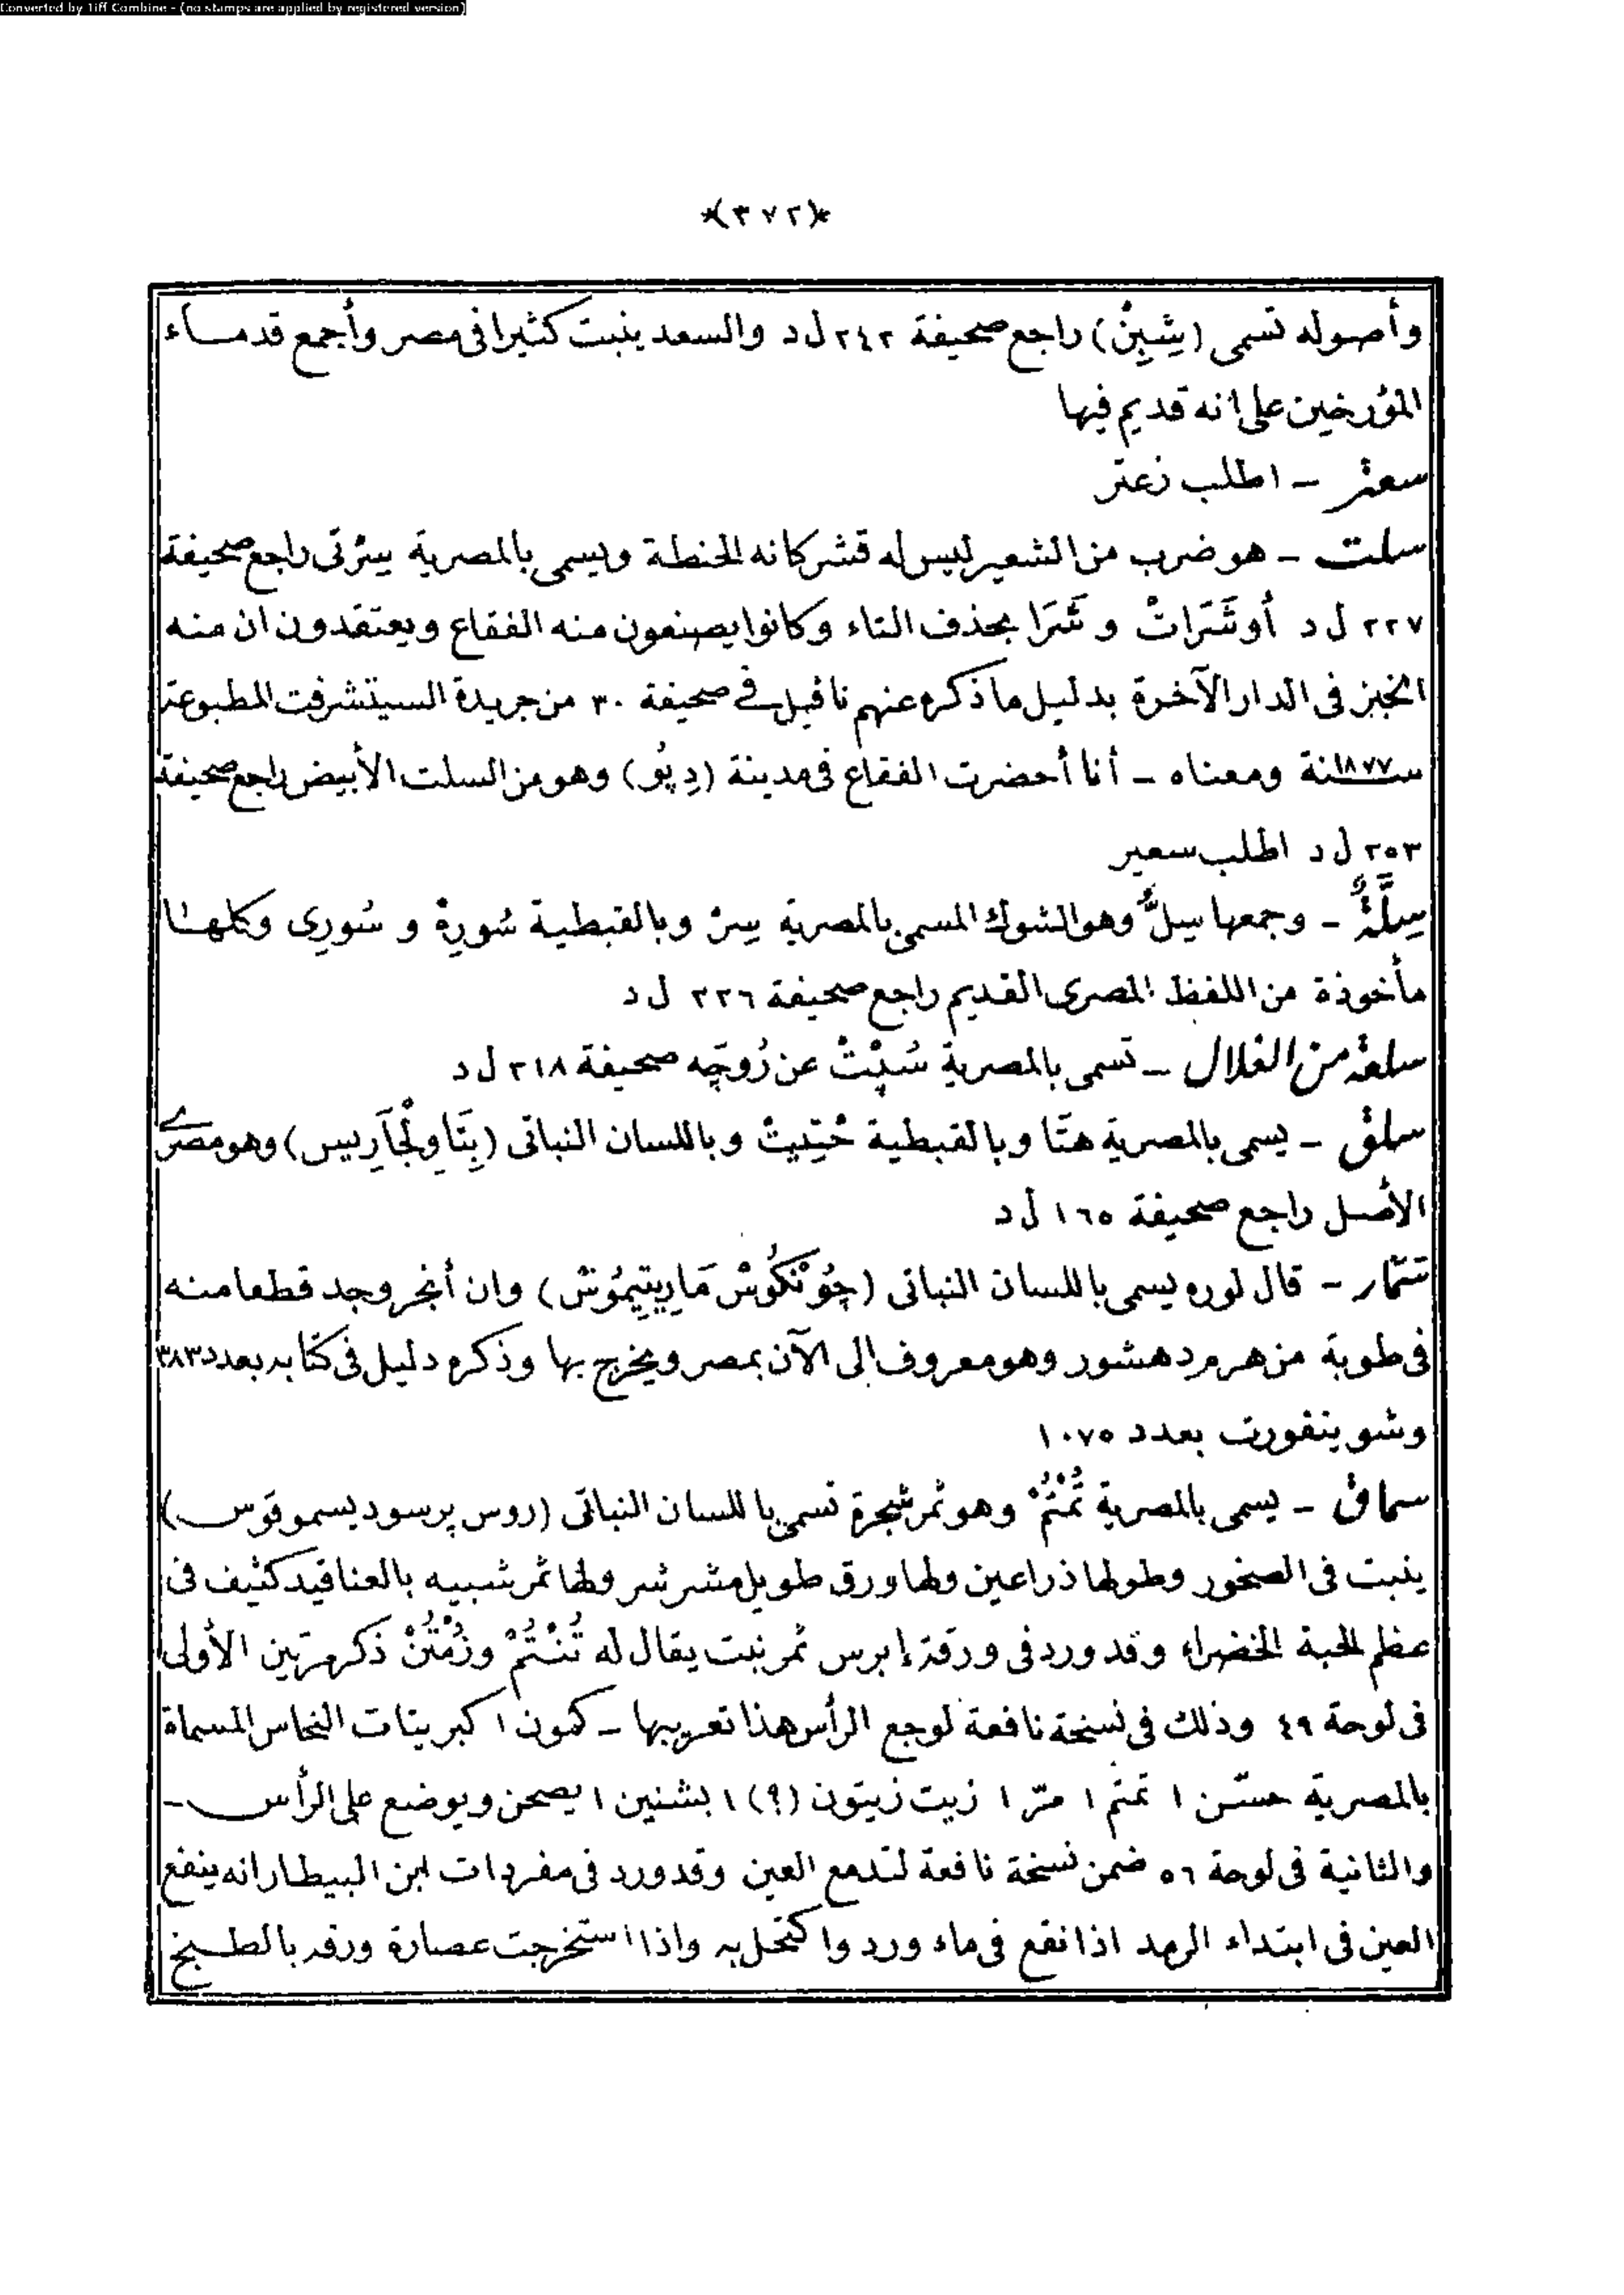 Converted by Tiff Combine - (no stamps are applied by registered version)
*(٣٧٢)*
وأصوله تسمى (شِبِنْ) راجع صحيفة ٢٤٢ ل د والسعد ينبت كثيرا فى مصر وأجمع قدماء
المؤرخين على انه قديم فيها
سعتر – اطلب زعتر
سلت – هو ضرب من الشعير ليس له قشر كانه الحنطة ويسمى بالمصرية سِرْتى راجع صحيفة
٢٢٧ ل د أو شَرَاتْ و شَرَا بحذف التاء وكانوا يصنعون منه الفقاع ويعتقدون ان منه
الخبز فى الدار الآخرة بدليل ما ذكره عنهم ناڤيل فى صحيفة ٣٠ من جريدة السيتشرفت المطبوعة
سنة ١٨٧٧ ومعناه – أنا أحضرت الفقاع فى مدينة (دِپُو) وهو من السلت الأبيض راجع صحيفة
٢٥٣ ل د اطلب سعير
سِلَّةٌ – وجمعها سِلٌّ وهو الشوك المسمى بالمصرية سِرْ وبالقبطية سُورِهْ و سُورِى وكلها
مأخوذة من اللفظ المصرى القديم راجع صحيفة ٢٢٦ ل د
سلعة من الغلال – تسمى بالمصرية سُپْتْ عن رُوجِه صحيفة ٣١٨ ل د
سلق – يسمى بالمصرية هتَا وبالقبطية خْتِيتْ وباللسان النباتى (بِتَا وِلْجَارِيس) وهو مصرى
الأصل راجع صحيفة ١٦٥ ل د
سمّار – قال لوره يسمى باللسان النباتى (چُونْكُوسْ مَارِيتِيمُوسْ) وان أنجر وجد قطعا منه
فى طوبة من هرم دهشور وهو معروف الى الآن بمصر ويخرج بها وذكره دليل فى كتابه بعدد ٣٨٣
وشوينفورت بعدد ١٠٧٥
سماق – يسمى بالمصرية تُمْتُمْ وهو ثمر شجرة تسمى باللسان النباتى (روس پرسوديسموقوس)
ينبت فى الصخور وطولها ذراعين ولها ورق طويل مشرشر ولها ثمر شبيه بالعناقيد كثيف فى
عظم الحبة الخضراء وقد ورد فى ورقة إبرس ثمر نبت يقال له تُنْتُمْ وزُمْتُنْ ذكر مرتين الأولى
فى لوحة ٤٩ وذلك فى نسخة نافعة لوجع الرأس هذا تعريبها – كمون ١ كبريتات النحاس المسماة
بالمصرية حسّن ١ تمتم ١ مرّ ١ زيت زيتون (؟) ١ بشنين ١ يصحن ويوضع على الرأس –
والثانية فى لوحة ٥٦ ضمن نسخة نافعة لتدمع العين وقد ورد فى مفردات ابن البيطار انه ينفع
العين فى ابتداء الرمد اذا نقع فى ماء ورد واكتحل به واذا استخرجت عصارة ورقه بالطبخ